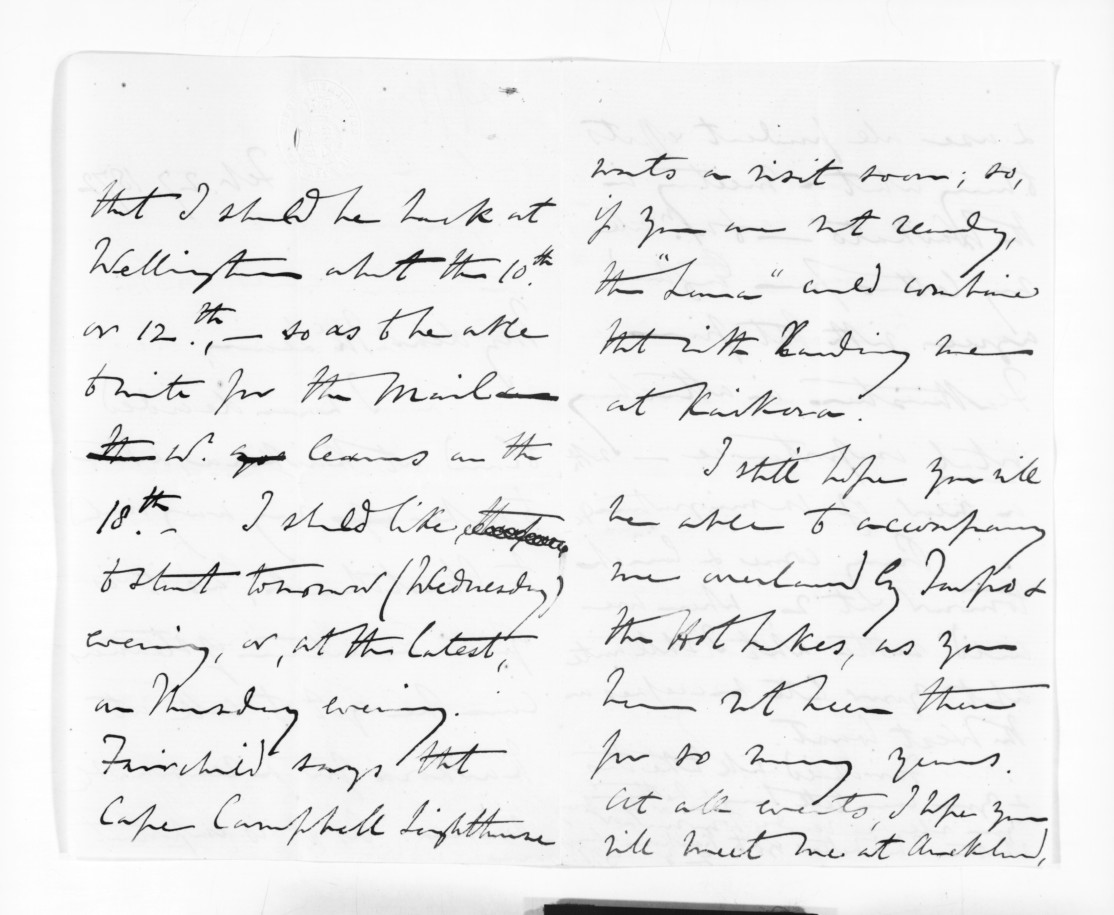 that I should be back at
Wellington about the 10th.
or 12th., — so as to be able
to write for the Mail
the w. leaves on the
18th. — I should like
to start tomorrow (Wednesday)
evening, or, at the latest,
on Thursday evening.
Fairchild says that
Cape Campbell Lighthouse
wants a visit soon; so,
if you are not ready,
the "Luna" could combine
that with landing me
at Kaikora.
I still hope you will
be able to accompany
me overland by Taupo &
the Hot Lakes, as you
have not been there
for so many years.
At all events, I hope you
will meet me at Auckland,